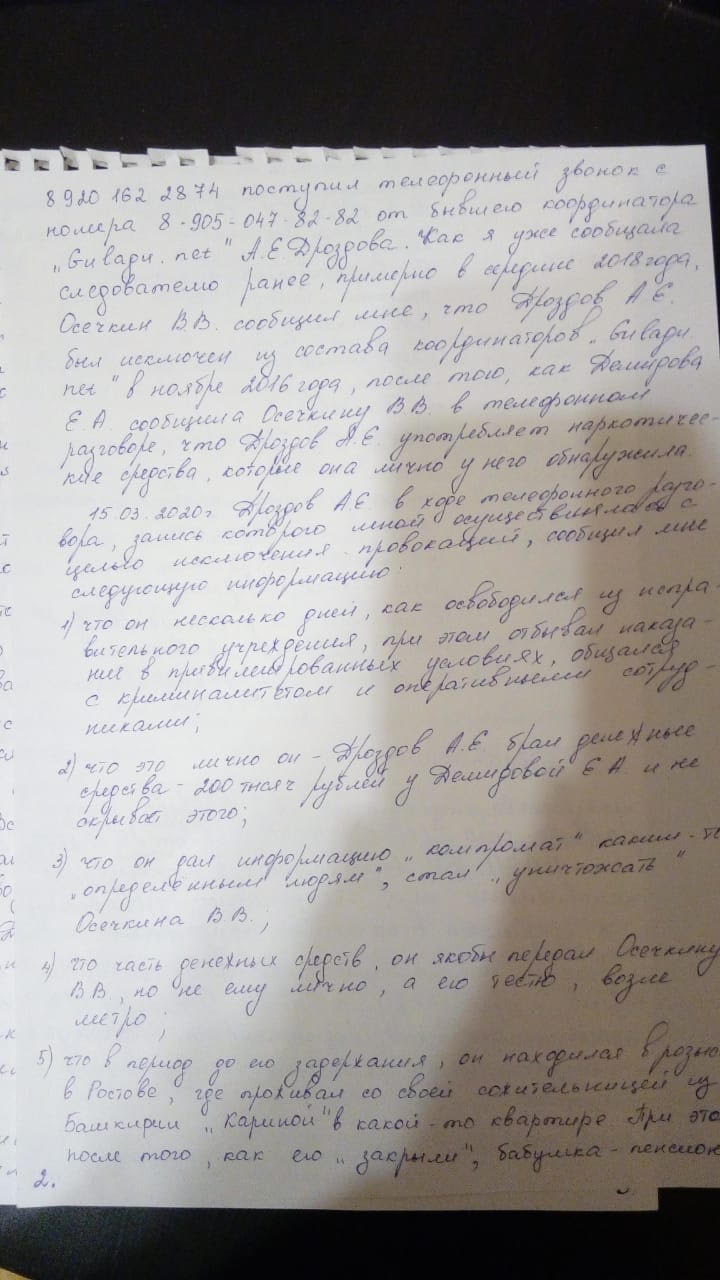 8920 162 2874 поступил телефонный звонок с
номера 8-905-047-82-82 от бывшего координатора
„Gulagu.net" А.Е.Дроздова. Как я уже сообщала
следователю ранее, примерно в середине 2018 года,
Осечкин В.В. сообщил мне, что Дроздов А.Е.
был исключен из состава координаторов „Gulagu.
net" в ноябре 2016 года, после того, как Демидова
Е.А. сообщила Осечкину В.В. в телефонном
разговоре, что Дроздов А.Е. употребляет наркотичес-
кие средства, которые она лично у него обнаружила.
15.03.2020г. Дроздов А.Е. в ходе телефонного разго-
вора, запись которого мной осуществлялась с
целью исключения провокаций, сообщил мне
следующую информацию:
1) что он несколько дней, как освободился из испра-
вительного учреждения, при этом отбывал наказа-
ние в привилегированных условиях, общался
с криминалитетом и оперативными сотруд-
никами;
2) что это лично он - Дроздов А.Е. брал денежные
средства - 200 тысяч рублей у Демидовой Е.А. и не
скрывает этого;
3) что он дал информацию „компромат" каким-то
„определённым людям", стал „уничтожать"
Осечкина В.В.;
4) что часть денежных средств, он якобы передал Осечкину
В.В., но не ему лично, а его тестю, возле
метро;
5) что в период до его задержания, он находился в розыс
в Ростове, где проживал со своей сожительницей из
Башкирии „Кариной" в какой-то квартире. При это
после того, как его „закрыли", бабушка-пенсион
2.